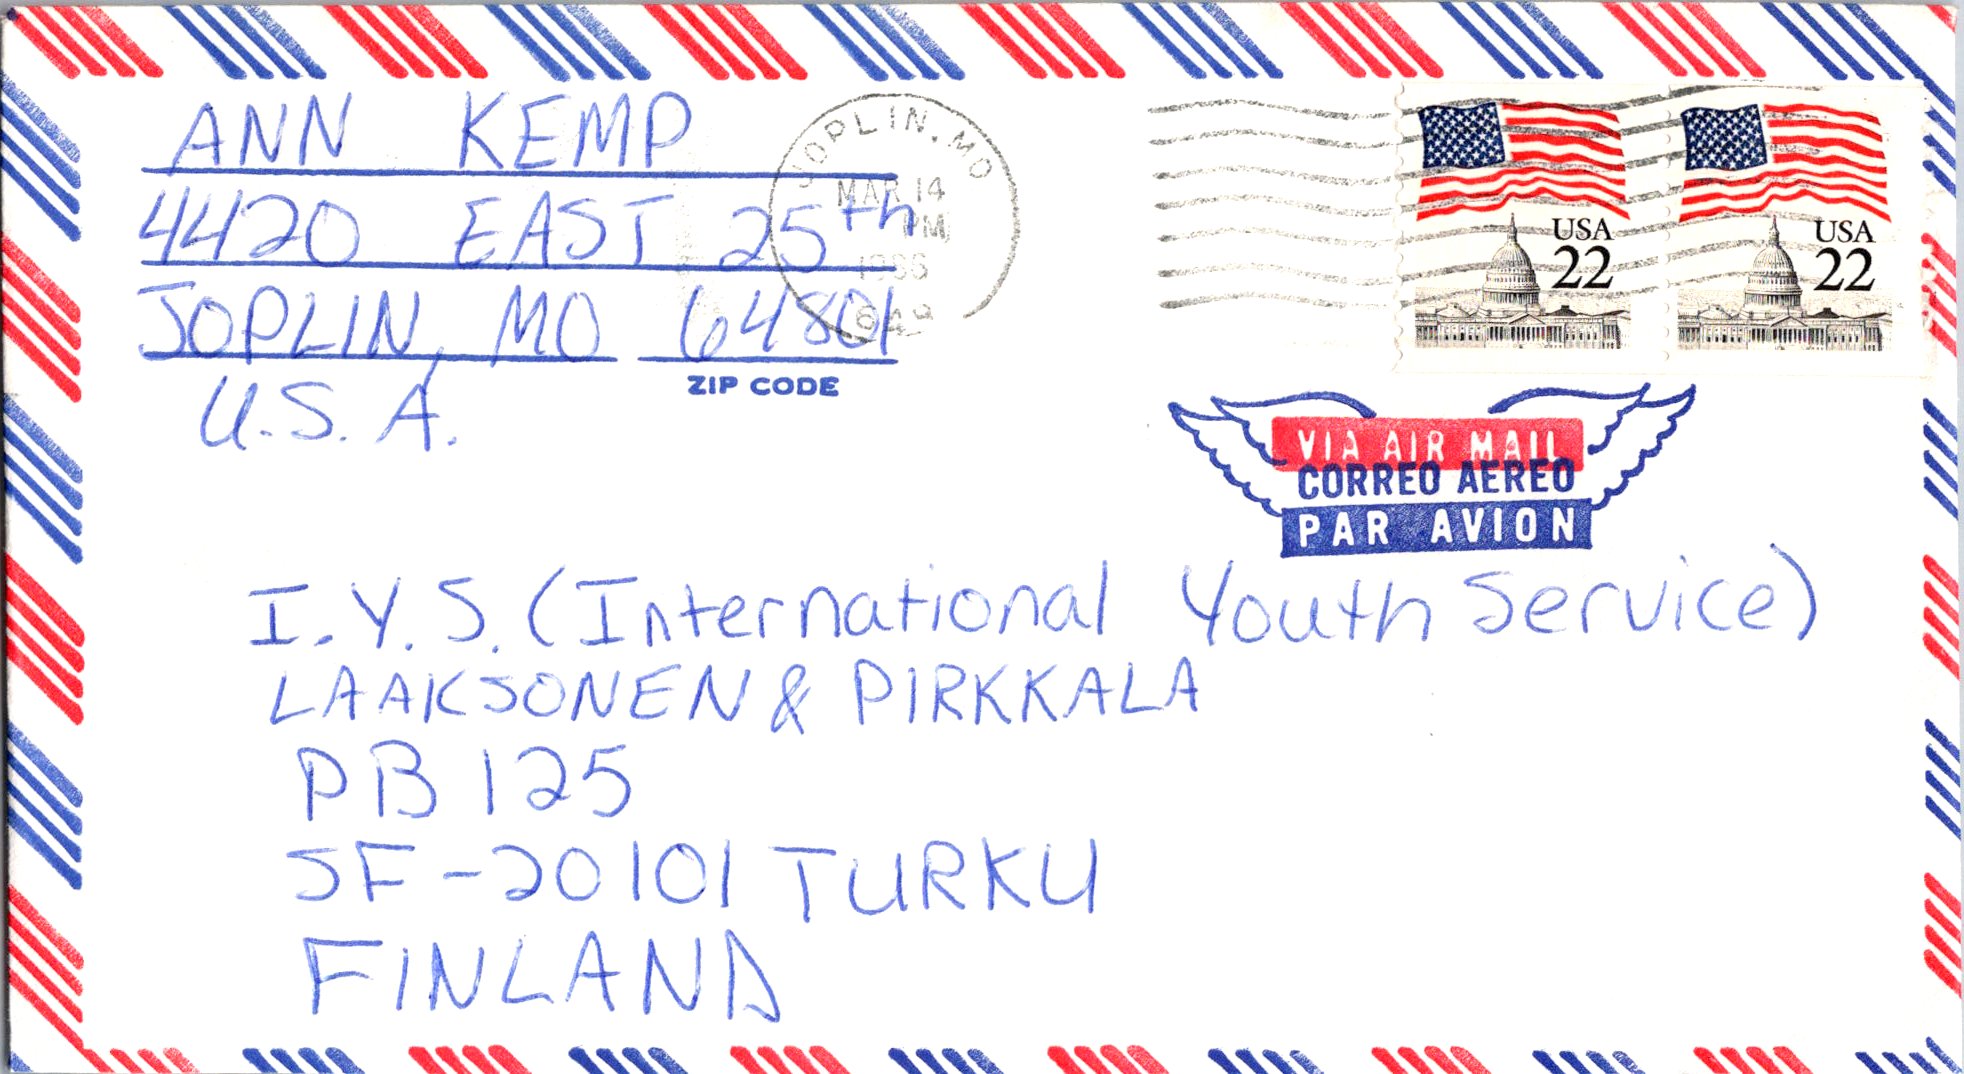 ANN KEMP
4420 EAST 25th
JOPLIN, MO 64801
ZIP CODE
U.S.A.
JOPLIN, MO
MAR 14
PM
USA
22
USA
22
VIA AIR MAIL
CORREO AEREO
PAR AVION
I.Y.S. (International Youth Service)
LAAKSONEN & PIRKKALA
PB 125
SF-20101 TURKU
FINLAND